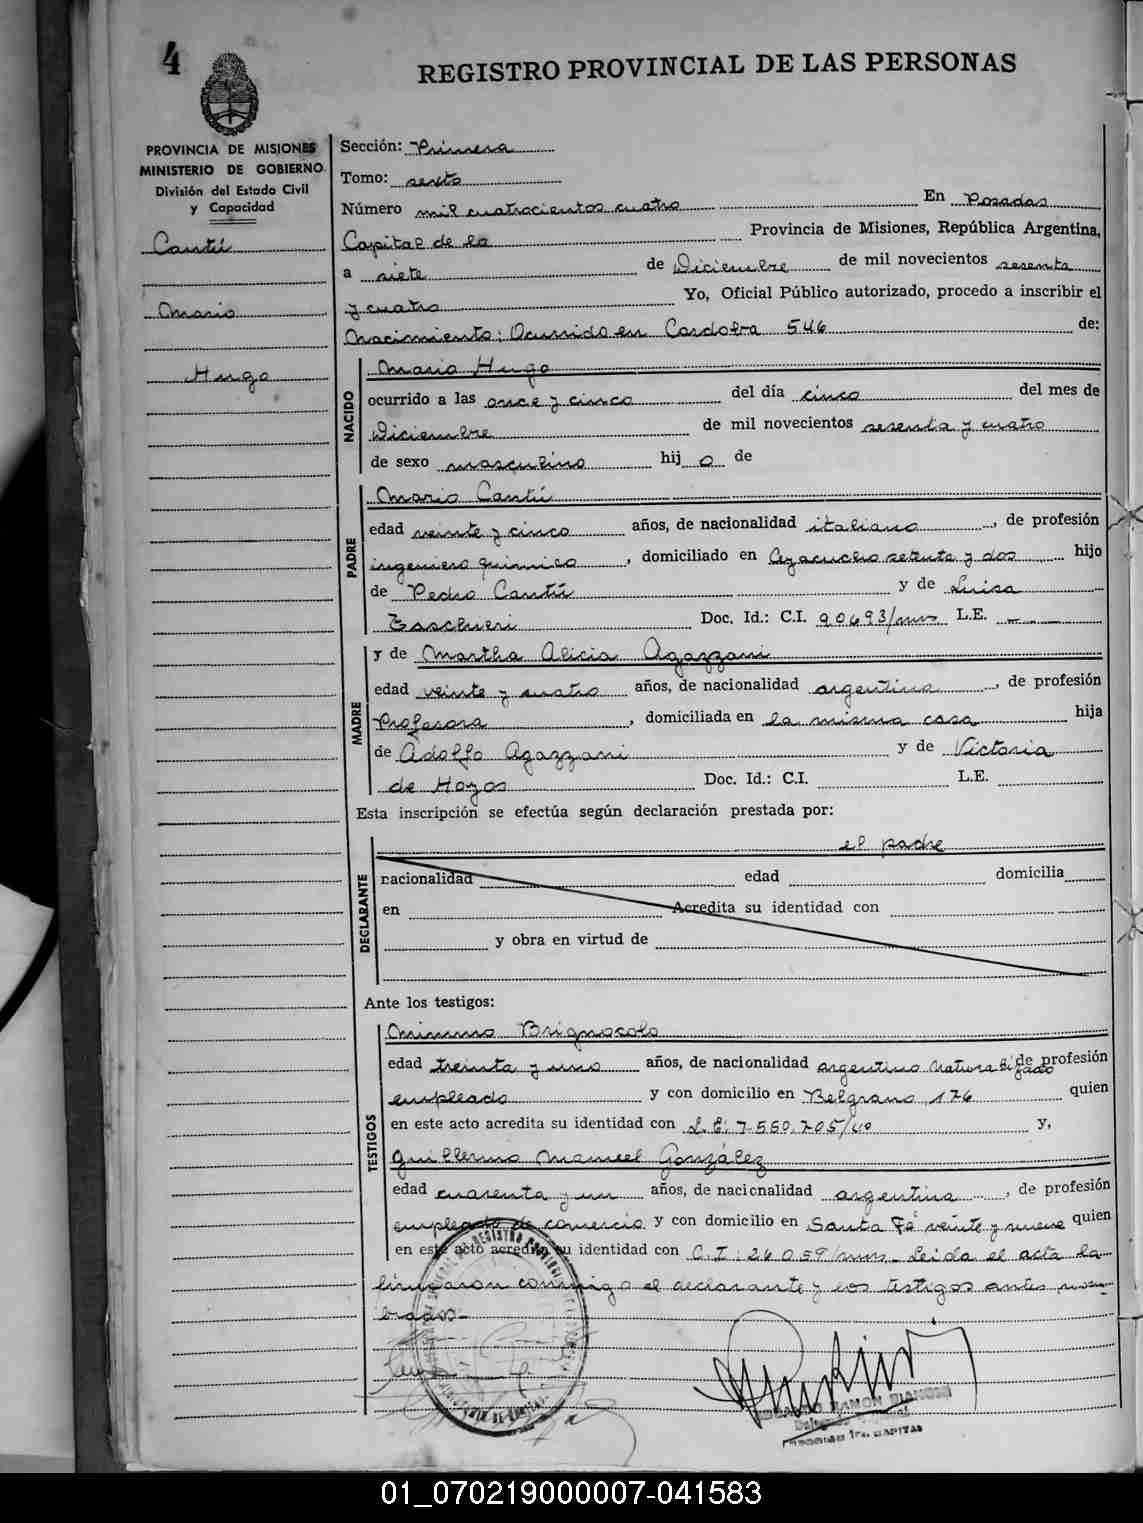 4
REGISTRO PROVINCIAL DE LAS PERSONAS
PROVINCIA DE MISIONES
MINISTERIO DE GOBIERNO
División del Estado Civil
y Capacidad
Cantú
Mario
Hugo
Sección: Primera
Tomo: sexto
Número mil cuatrocientos cuatro En Posadas
Capital de la Provincia de Misiones, República Argentina,
a siete de Diciembre de mil novecientos sesenta
y cuatro Yo, Oficial Público autorizado, procedo a inscribir el
Nacimiento: Ocurrido en Cordoba 546 de:
NACIDO
Mario Hugo
ocurrido a las once y cinco del día cinco del mes de
Diciembre de mil novecientos sesenta y cuatro
de sexo masculino hij o de
PADRE
Mario Cantú
edad veinte y cinco años, de nacionalidad italiano, de profesión
ingeniero quimico, domiciliado en Ayacucho setenta y dos hijo
de Pedro Cantú y de Luisa
Doc. Id.: C.I. 90693/mnes L.E. —
MADRE
y de Martha Alicia Agazzani
edad veinte y cuatro años, de nacionalidad argentina, de profesión
Profesora, domiciliada en la misma casa hija
de Adolfo Agazzani y de Victoria
de Hoyos Doc. Id.: C.I. L.E.
Esta inscripción se efectúa según declaración prestada por:
el padre
DECLARANTE
nacionalidad edad domicilia
en Acredita su identidad con
y obra en virtud de
Ante los testigos:
TESTIGOS
Mimmo Brignocolo
edad treinta y uno años, de nacionalidad argentino naturalizado de profesión
empleado y con domicilio en Belgrano 176 quien
en este acto acredita su identidad con L.E: 7.560.705/40 y,
Guillermo Manuel González
edad cuarenta y un años, de nacionalidad argentina, de profesión
empleado de comercio y con domicilio en Santa Fé veinte y nueve quien
en este acto acredita su identidad con C.I: 26.059/mnes. Leida el acta la
firmaron conmigo el declarante y los testigos antes nom-
brados-
RAMON BIANCHI
01_070219000007-041583